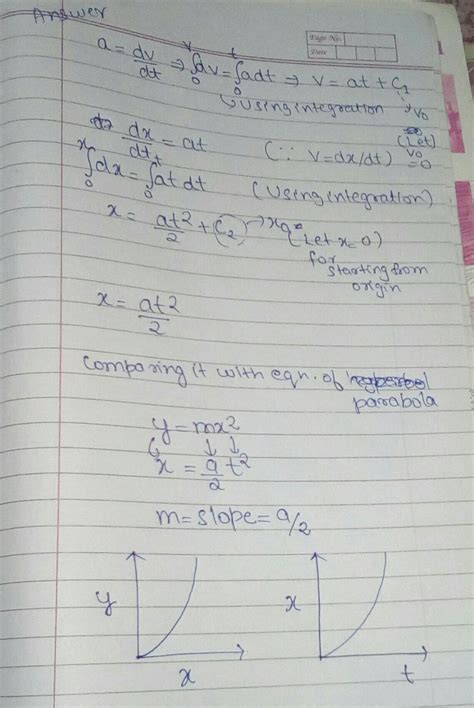 Answer
Page No.
Date
a = dv/dt ⇒ ∫₀ᵛ dv = ∫₀ᵗ a dt ⇒ v = at + C₁
↳ Using integration v₀
(Let)
v₀
= 0
dx/dt = at (∵ v = dx/dt)
∫₀ˣ dx = ∫₀ᵗ at dt (Using integration)
x = at²/2 + C₂ → x₀ (Let x=0)
for
starting from
origin
x = at²/2
Comparing it with eqn. of
parabola
y = mx²
x = a/2 t²
m = slope = a/2
y x
x t